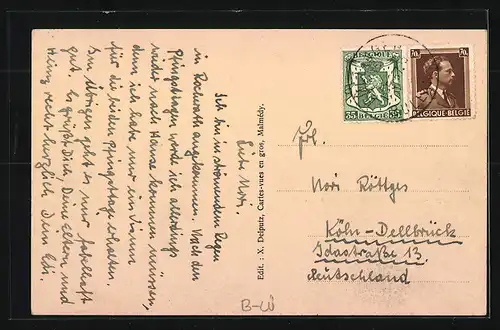 Liebe Nori.
Ich bin in strömendem Regen
in Rocherath angekommen. Nach den
Pfingsttagen werde ich allerdings
wieder nach Hause kommen müssen,
denn ich habe nur ein Zimmer
für die beiden Pfingsttage erhalten.
Im Übrigen geht es mir fabelhaft
gut. Es grüßt Dich, Deine Eltern und
Heinz recht herzlich Dein Edi.
Edit. : X. Delputz, Cartes-vues en gros, Malmédy.
BELGIQUE
35 BELGIE 35
70c 70c
BELGIQUE-BELGIE
Frl.
Nori Röttges
Köln-Dellbrück
Idastraße 13
Deutschland
B-W